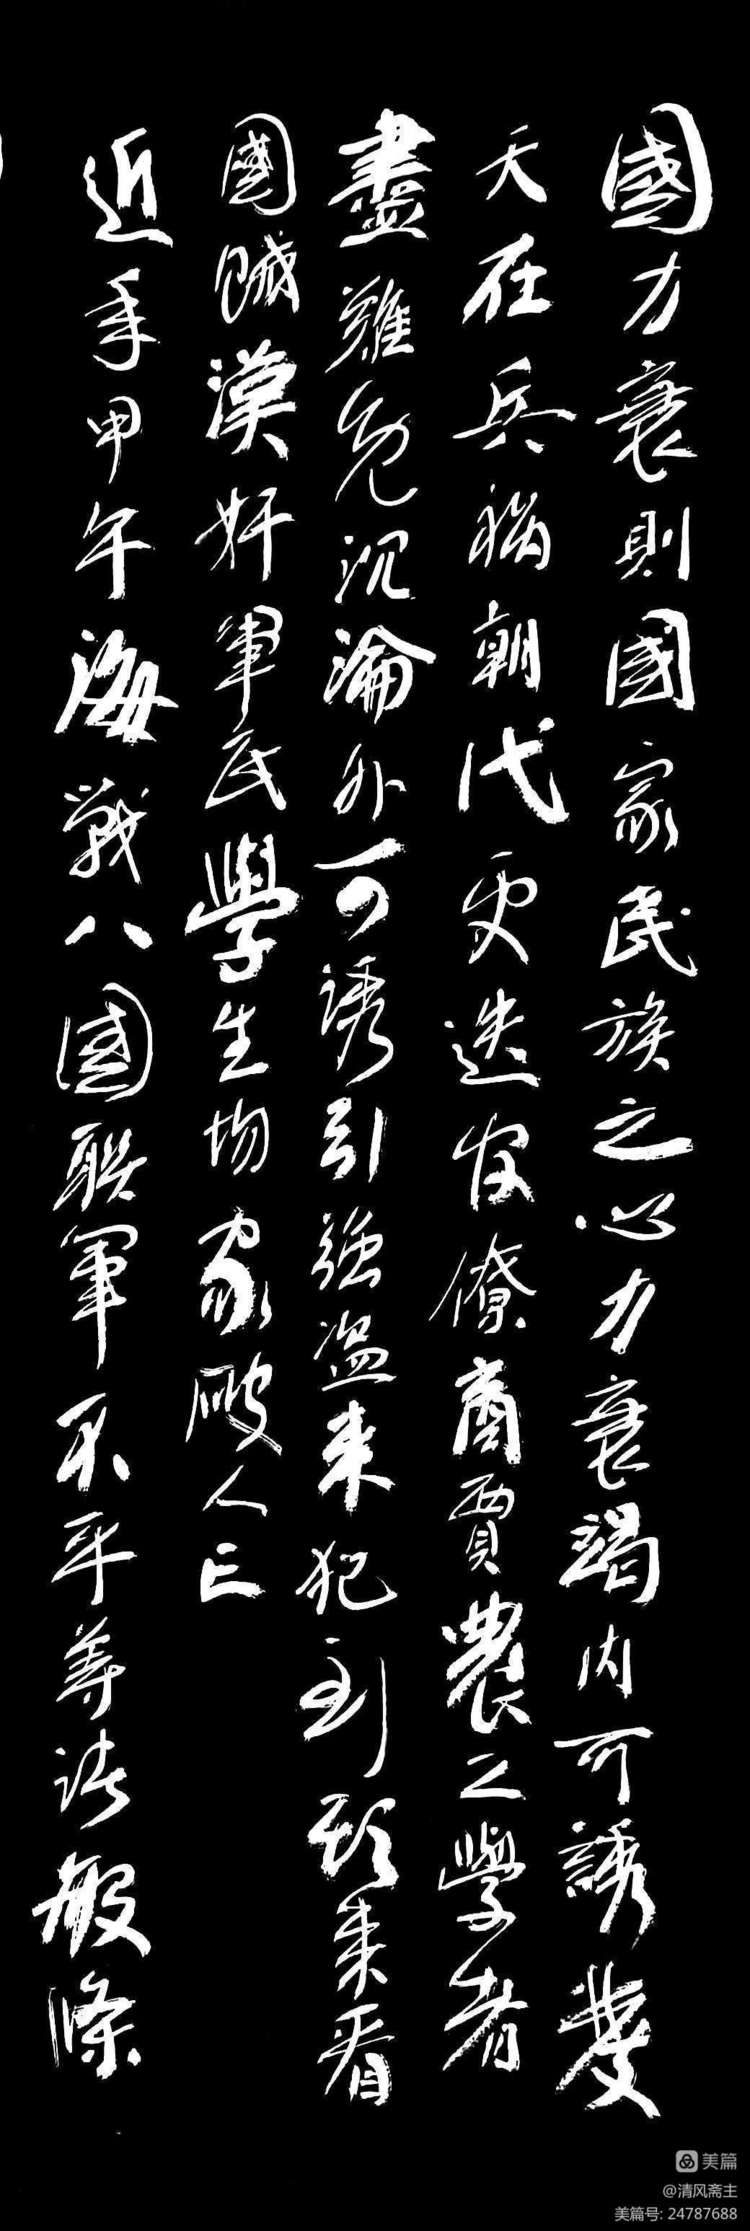 國力衰則國家民族之心力衰竭内可誘發
天在兵禍朝代更迭官僚商賈農之學者
盡難免沉淪外可誘引強盜来犯到頭来看
國賊漢奸軍民學生均家破人亡
近年甲午海戰八國聯軍不平等諸般條
美篇
@清风斋主
美篇号: 24787688